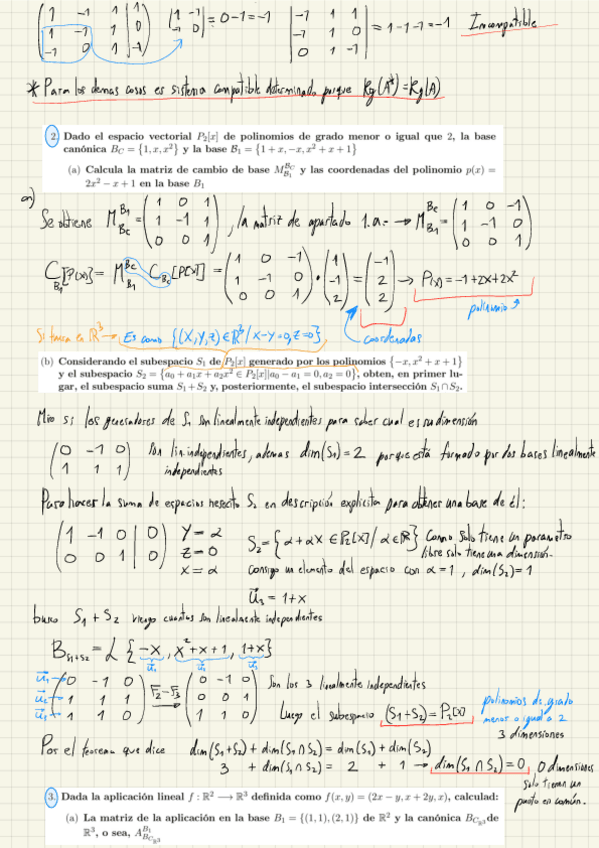 (1 -1 1 | 1
1 -1 1 | 0
-1 0 1 | -1) |1 -1
-1 0| = 0-1 = -1 |-1 1 1
-1 1 0
0 1 -1| = 1-1-1 = -1 Incompatible
* Para los demas casos es sistema compatible determinado porque Rg(A*) = Rg(A)
2. Dado el espacio vectorial P₂[x] de polinomios de grado menor o igual que 2, la base
canónica B_C = {1, x, x²} y la base B₁ = {1 + x, −x, x² + x + 1}
(a) Calcula la matriz de cambio de base M_{B₁}^{B_C} y las coordenadas del polinomio p(x) =
2x² − x + 1 en la base B₁
a)
Se obtiene M_{Bc}^{B1} = (1 0 1
1 -1 1
0 0 1), la matriz de apartado 1.a. → M_{B1}^{Bc} = (1 0 -1
1 -1 0
0 0 1)
C_{B1}[P(x)] = M_{B1}^{Bc} C_{Bc}[P(x)] = (1 0 -1
1 -1 0
0 0 1) · (1
-1
2) = (-1
2
2) → P(x) = -1+2x+2x²
polinomio
coordenadas
Si fuera en ℝ³ → Es como {(x,y,z) ∈ ℝ³ / x-y=0, z=0}
(b) Considerando el subespacio S₁ de P₂[x] generado por los polinomios {−x, x² + x + 1}
y el subespacio S₂ = {a₀ + a₁x + a₂x² ∈ P₂[x]|a₀ − a₁ = 0, a₂ = 0}, obten, en primer lu-
gar, el subespacio suma S₁ + S₂ y, posteriormente, el subespacio intersección S₁ ∩ S₂.
Miro si los generadores de S₁ son linealmente independientes para saber cual es su dimensión
(0 -1 0
1 1 1) Son lin. independientes, ademas dim(S₁) = 2 porque está formado por dos bases linealmente
independientes
Para hacer la suma de espacios necesito S₂ en descripción explicita para obtener una base de él:
(1 -1 0 | 0
0 0 1 | 0) y = α
z = 0
x = α
S₂ = {α+αx ∈ P₂[x] / α ∈ ℝ} Como solo tiene un parametro
libre solo tiene una dimensión.
Consigo un elemento del espacio con α = 1, dim(S₂) = 1
u⃗₃ = 1+x
busco S₁ + S₂ viendo cuantos son linealmente independientes
B_{S1+S2} = L {-x, x²+x+1, 1+x}
u⃗₁ u⃗₂ u⃗₃
u⃗₁→ u⃗₂→ u⃗₃→ (0 -1 0
1 1 1
1 1 0) F₂-F₃→ (0 -1 0
0 0 1
1 1 0) Son los 3 linealmente independientes
Luego el subespacio (S₁+S₂) = P₂[x]
polinomios de grado
menor o igual a 2
3 dimensiones
Por el teorema que dice dim(S₁+S₂) + dim(S₁∩S₂) = dim(S₁) + dim(S₂)
3 + dim(S₁∩S₂) = 2 + 1 → dim(S₁∩S₂) = 0, 0 dimensiones
solo tienen un
punto en común.
3. Dada la aplicación lineal f : ℝ² ⟶ ℝ³ definida como f(x, y) = (2x − y, x + 2y, x), calculad:
(a) La matriz de la aplicación en la base B₁ = {(1, 1), (2, 1)} de ℝ² y la canónica B_{C_{ℝ³}} de
ℝ³, o sea, A_{B_{C_{ℝ³}}}^{B₁}